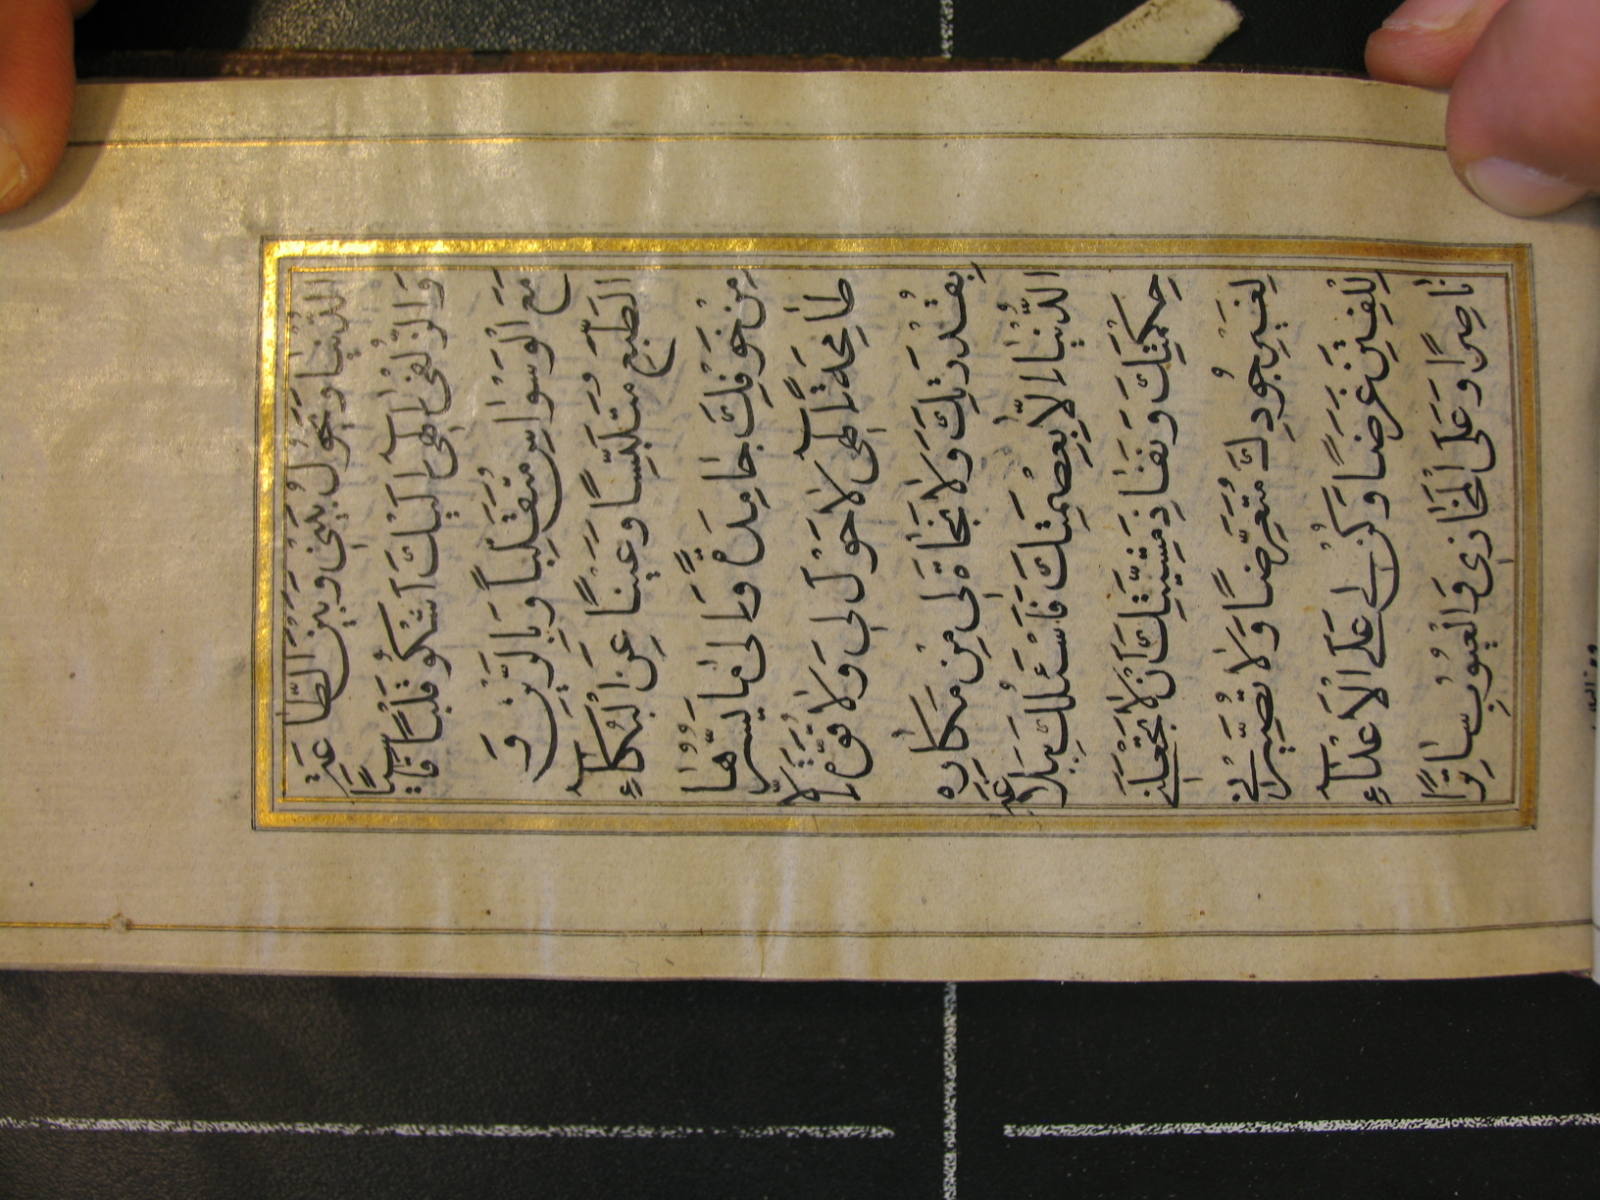 الدُّنْيَا وَيَحُولُ بَيْنِي وَبَيْنَ الطَّاعَةِ
وَالزُّلْفَى إِلٰهِي إِلَيْكَ أَشْكُو قَلْبًا قَاسِيًا
مَعَ الْوَسْوَاسِ مُتَقَلِّبًا وَبِالرَّيْنِ وَ
الطَّبْعِ مُتَلَبِّسًا وَعَيْنًا عَنِ الْبُكَاءِ
مِنْ خَوْفِكَ جَامِدَةً وَإِلَى مَا يَسُرُّهَا
طَامِحَةً إِلٰهِي لَا حَوْلَ لِي وَلَا قُوَّةَ إِلَّا
بِقُدْرَتِكَ وَلَا نَجَاةَ لِي مِنْ مَكَارِهِ
الدُّنْيَا إِلَّا بِعِصْمَتِكَ فَأَسْئَلُكَ بِبَلَاغَةِ
حِكْمَتِكَ وَنَفَاذِ مَشِيَّتِكَ أَنْ لَا تَجْعَلَنِي
لِغَيْرِ جُودِكَ مُتَعَرِّضًا وَلَا تُصَيِّرَنِي
لِلْفِتَنِ غَرَضًا وَكُنْ لِي عَلَى الْأَعْدَاءِ
نَاصِرًا وَعَلَى الْمَخَازِي وَالْعُيُوبِ سَاتِرًا